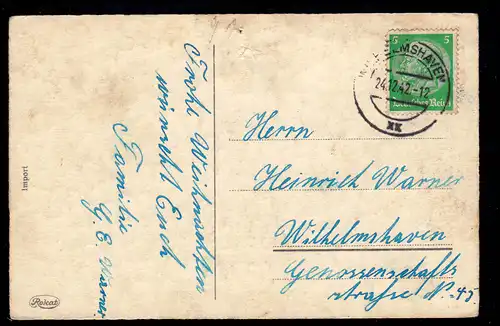 Frohe Weihnachten
wünscht Euch
Familie
G. E. Warner.
Import
5 5
Deutsches Reich
WILHELMSHAVEN
24.12.42.-12
XX
Herrn
Heinrich Warner
Wilhelmshaven
Genossenschafts
strasse No. 45.